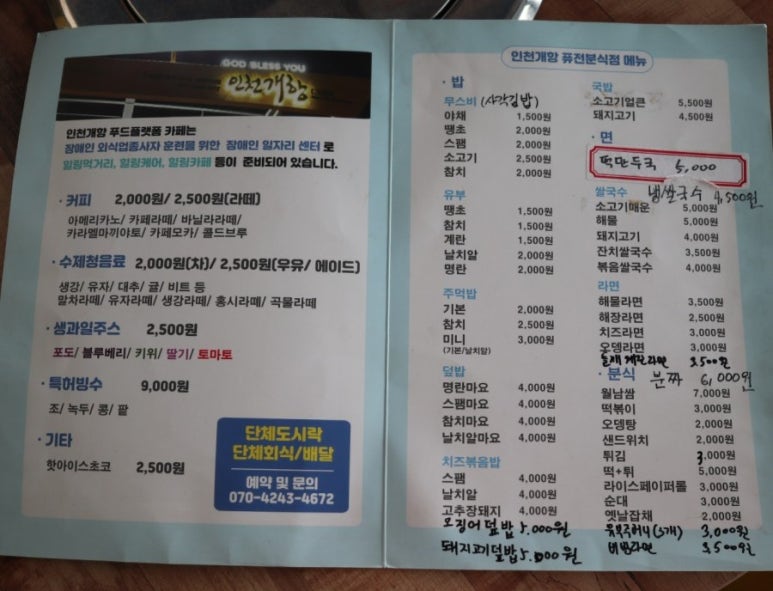 GOD BLESS YOU
인천개항
인천개항 푸드플랫폼 카페는
장애인 외식업종사자 훈련을 위한 장애인 일자리 센터로
힐링먹거리, 힐링케어, 힐링카페 등이 준비되어 있습니다.
· 커피 2,000원/ 2,500원(라떼)
아메리카노/ 카페라떼/ 바닐라라떼/
카라멜마끼야또/ 카페모카/ 콜드브루
· 수제청음료 2,000원(차)/ 2,500원(우유/ 에이드)
생강/ 유자/ 대추/ 귤/ 비트 등
말차라떼/ 유자라떼/ 생강라떼/ 홍시라떼/ 곡물라떼
· 생과일주스 2,500원
포도/ 블루베리/ 키위/ 딸기/ 토마토
· 특허빙수 9,000원
조/ 녹두/ 콩/ 팥
· 기타
핫아이스초코 2,500원
단체도시락
단체회식/배달
예약 및 문의
070-4243-4672
인천개항 퓨전분식점 메뉴
· 밥
무스비 (사각김밥)
야채 1,500원
땡초 2,000원
스팸 2,000원
소고기 2,500원
참치 2,000원
유부
땡초 1,500원
참치 1,500원
계란 1,500원
날치알 2,000원
명란 2,000원
주먹밥
기본 2,000원
참치 2,500원
미니 3,000원
(기본/날치알)
덮밥
명란마요 4,000원
스팸마요 4,000원
참치마요 4,000원
날치알마요 4,000원
치즈볶음밥
스팸 4,000원
날치알 4,000원
고추장돼지 4,000원
오징어덮밥 5,000원
돼지고기덮밥 5,000원
국밥
소고기얼큰 5,500원
돼지고기 4,500원
· 면
떡만두국 5,000
쌀국수 냉쌀국수 4,500원
소고기매운 5,000원
해물 5,000원
돼지고기 4,000원
잔치쌀국수 3,500원
볶음쌀국수 4,000원
라면
해물라면 3,500원
해장라면 2,500원
치즈라면 3,000원
오뎅라면 3,000원
3,500원
· 분식 분짜 6,000원
월남쌈 7,000원
떡볶이 3,000원
오뎅탕 2,000원
샌드위치 2,000원
튀김 3,000원
떡+튀 5,000원
라이스페이퍼롤 3,000원
순대 3,000원
옛날잡채 2,000원
유부주머니(3개) 3,000원
비빔라면 3,500원